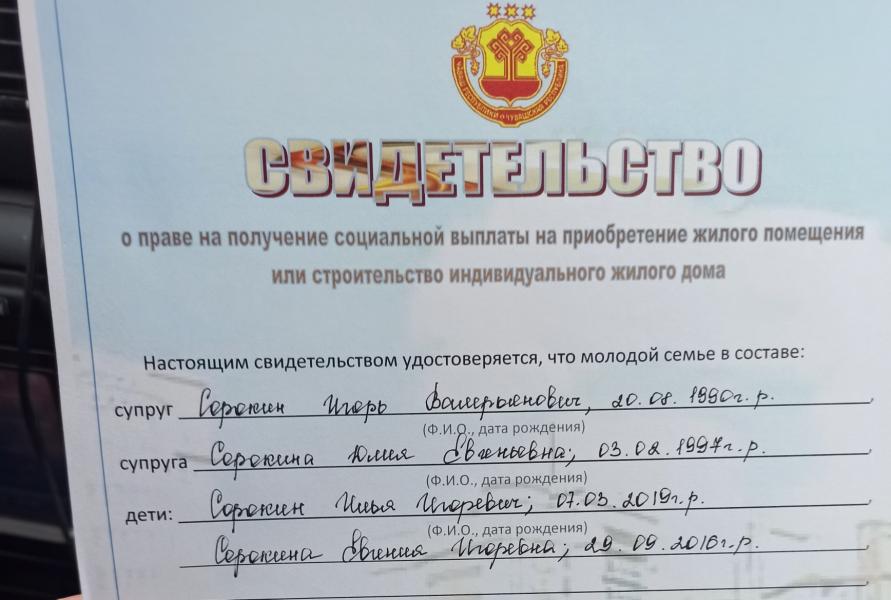 СВИДЕТЕЛЬСТВО
о праве на получение социальной выплаты на приобретение жилого помещения
или строительство индивидуального жилого дома
Настоящим свидетельством удостоверяется, что молодой семье в составе:
супруг Сорокин Игорь Валерьянович, 20.08.1990г.р.,
(Ф.И.О., дата рождения)
супруга Сорокина Юлия Евгеньевна; 03.02.1997г.р.,
(Ф.И.О., дата рождения)
дети: Сорокин Илья Игоревич; 07.03.2019г.р.,
(Ф.И.О., дата рождения)
Сорокина Евгения Игоревна; 29.09.2016г.р.,